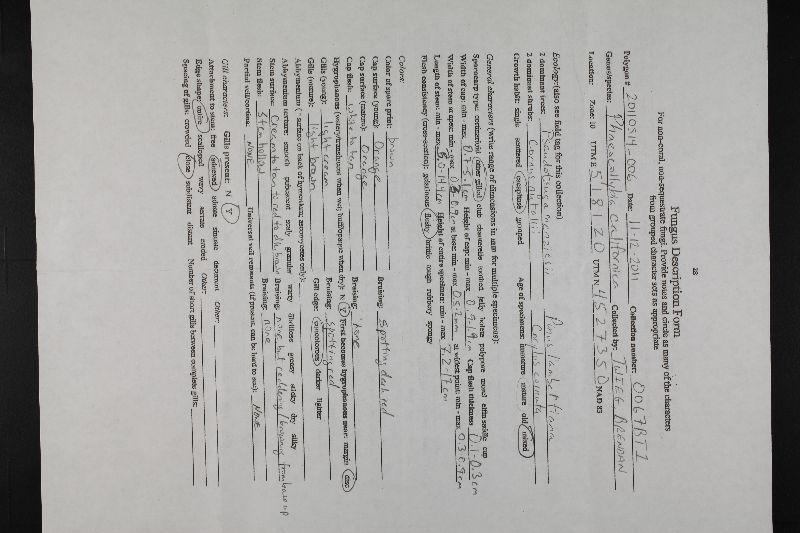 28
Fungus Description Form
For non-coral, non-sequestrate fungi. Provide notes and circle as many of the characters
from grouped character sets as appropriate
Polygon # 20110514-006 Date: 11-12-2011 Collection number: 0067BTI
Genus/species: Phaeocollybia californica Collected by: TWIEG, BRENDAN
Location: Zone: 10 UTM E 518120 UTM N 4527350 NAD 83
Ecology (also see field tag for this collection)
2 dominant trees: Pseudotsuga menziesii Pinus lambertiana
2 dominant shrubs: Cornus nuttallii Corylus cornuta
Growth habit: single scattered caespitose grouped Age of specimens: immature mature old mixed
General characters (write range of dimensions in mm for multiple specimens):
Width of cap: min - max Height of cap: min - max Cap flesh thickness 0.1-0.3cm
Width of stem at apex: min - max at base: min - max at widest point: min - max 0.3-0.9cm
Length of stem: min - max Height of entire specimen: min - max
Flesh consistency (cross-section): gelatinous fleshy brittle tough rubbery spongy
Colors:
Color of spore print: brown
Cap surface (young): Orange Bruising: Spotting dark red
Cap surface (mature): Orange
Cap flesh: white to tan Bruising: None
Hygrophanous (watery/translucent when wet; buff/opaque when dry): N Y First becomes hygrophanous near: margin disc
Gills (young): light cream Bruising: spotting red
Gills (mature): light brown Gill edge: concolorous darker lighter
Abhymenium (= surface on back of hymenium; ascomycetes only):
Abhymenium texture: smooth pubescent scaly granular warty fibrillose greasy sticky dry silky
Stem surface: Cream to tan to red to dk. brown Bruising: none but reddening/browning from base up
Stem flesh: Stem hollow Bruising: none
Partial veil/cortina: None Universal veil remnants (if present, can be hard to see): None
Gill characters: Gills present: N Y
Attachment to stem: free adnexed adnate sinuate decurrent Other:
Edge shape: entire scalloped wavy serrate eroded Other:
Spacing of gills: crowded close subdistant distant Number of short gills between complete gills: